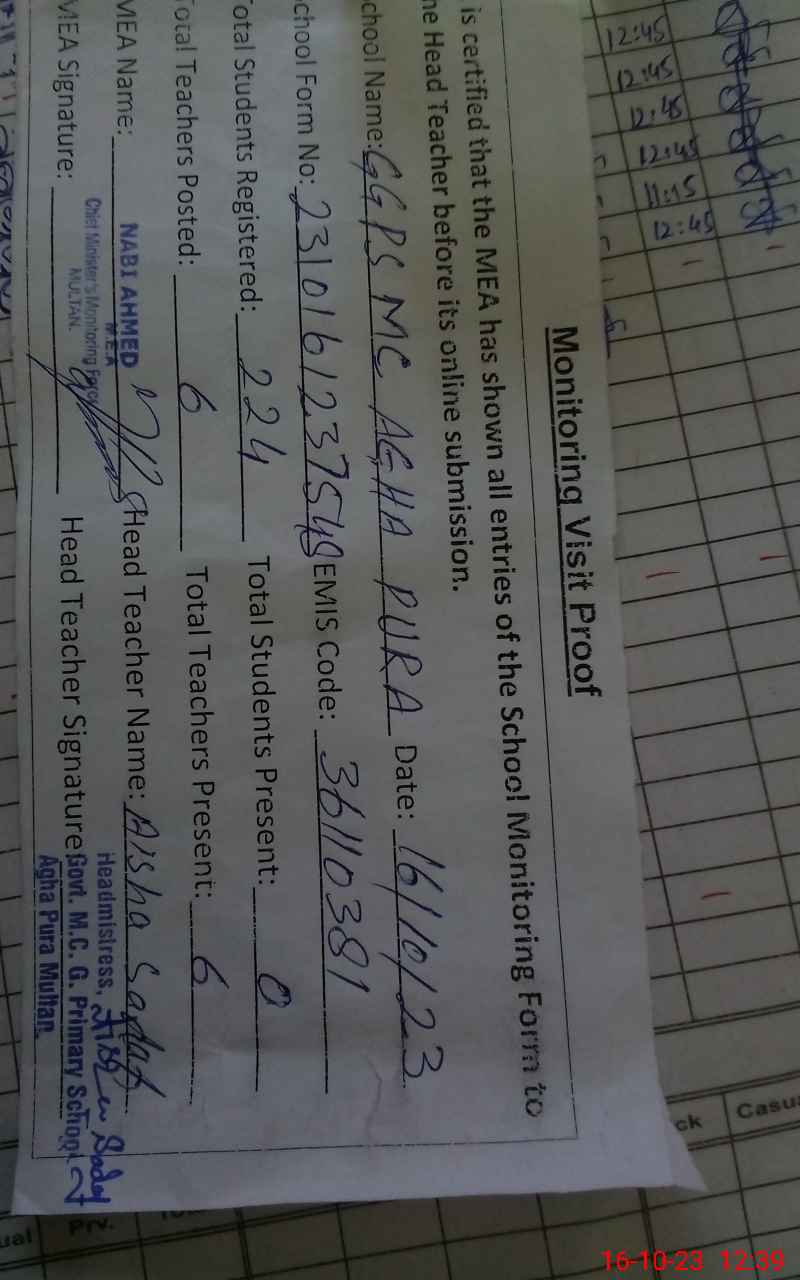 Monitoring Visit Proof
is certified that the MEA has shown all entries of the School Monitoring Form to
he Head Teacher before its online submission.
chool Name: GGPS MC AGHA PURA Date: 16/10/23
chool Form No: 231016123754 EMIS Code: 36110381
otal Students Registered: 224 Total Students Present: 0
otal Teachers Posted: 6 Total Teachers Present: 6
MEA Name: Head Teacher Name: Aisha
NABI AHMED
M.E.A
Chief Minister's Monitoring Force
MULTAN.
MEA Signature: Head Teacher Signature
Headmistress,
Govt. M.C. G. Primary School
Agha Pura Multan
12:45
12:45
12:45
12:45
ck
Casua
ual
16-10-23 12:39